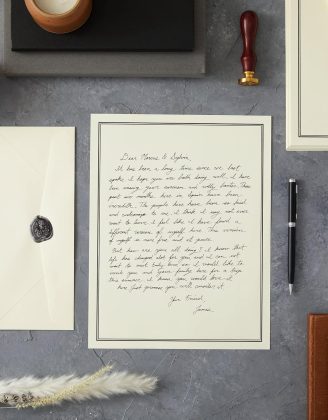 Dear Marcus & Sophia,
It has been a long time since we last
spoke. I hope you are both doing well. I have
been missing your and witty banter. These
past six months here in Spain have been
incredible. The people here have been so kind
and welcoming to me, I think I may not ever
want to leave. I feel like I have found a
different version of myself here. This version
of myself is more free and at peace.
But how are you all doing? I know that
life has changed a lot for you and I can not
wait to meet baby but I would like to
invite you and your family here for a trip
this summer. I know you would love it
here. Just promise you will consider it.
Your Friend,
James